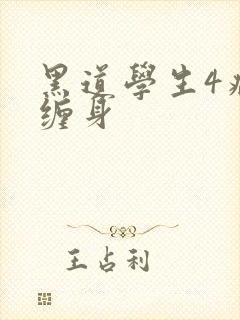 黑道學生4
缠身
王占利